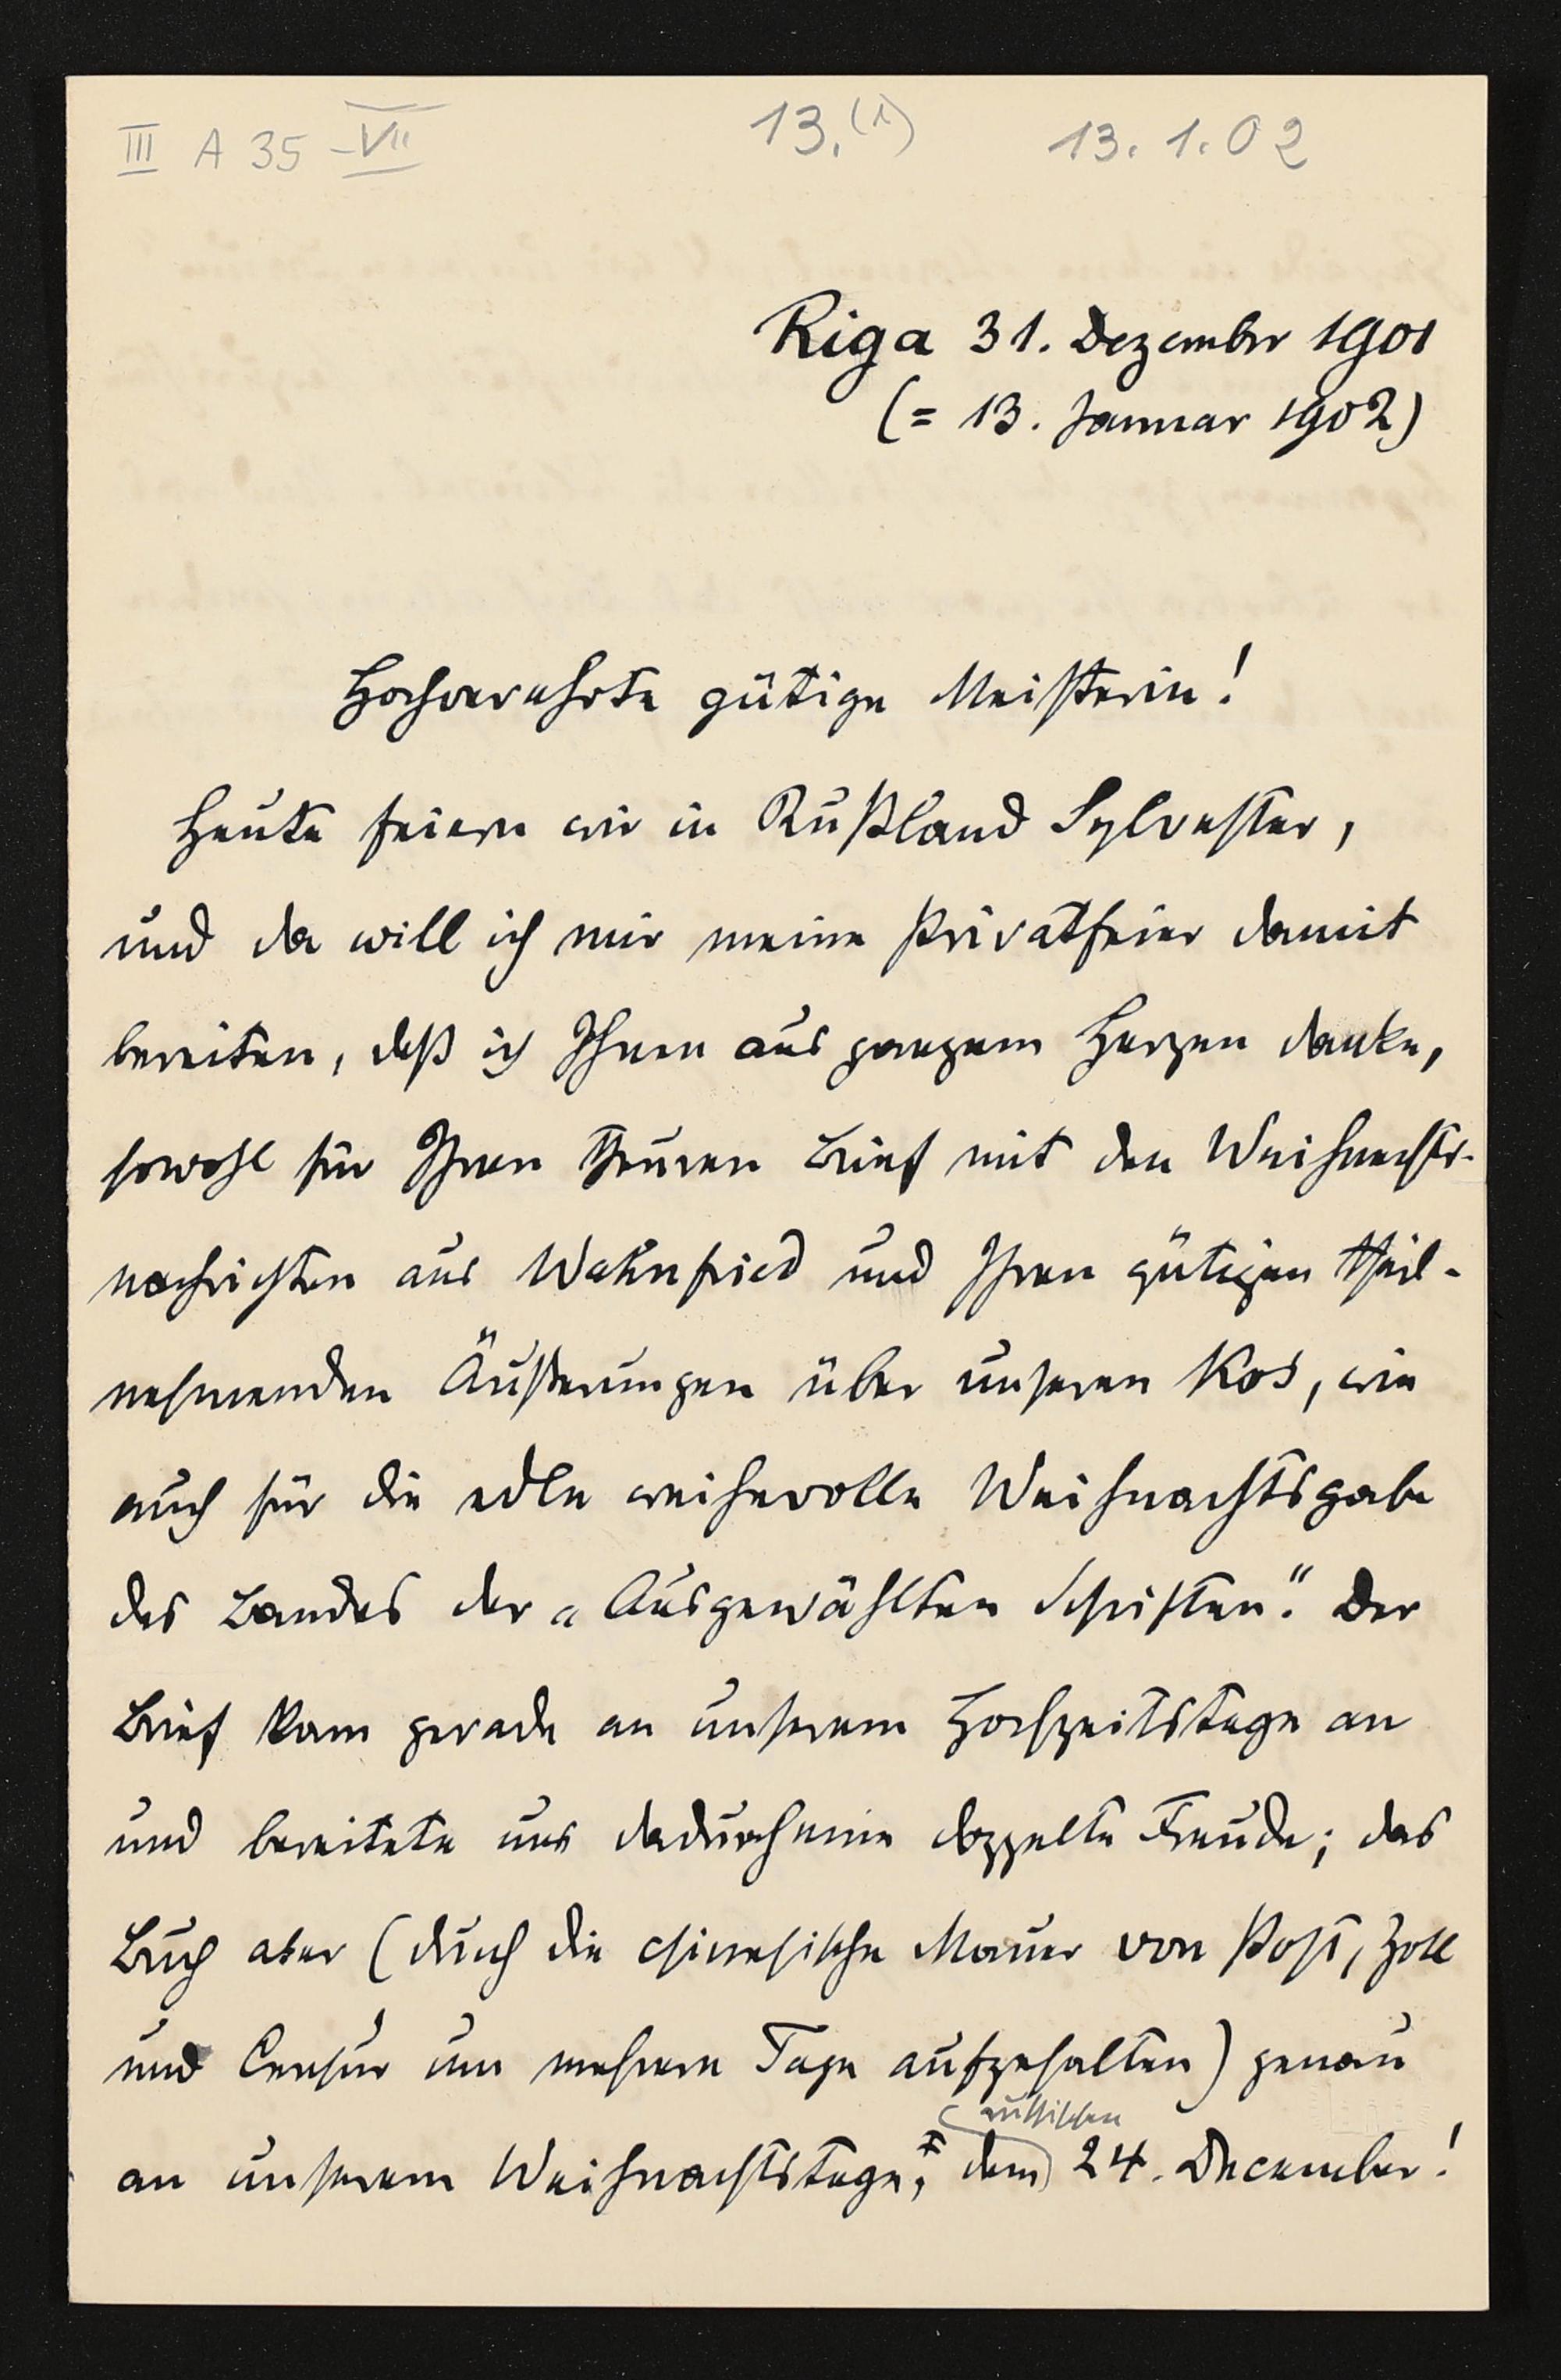 III A 35 - VII
13.(1)
13. 1. 02
Riga 31. Dezember 1901
(= 13. Januar 1902)
Hochverehrte gütige Meisterin!
Heute feiern wir in Rußland Sylvester,
und da will ich mir meine Privatfeier damit
bereiten, daß ich Ihnen aus ganzem Herzen danke,
sowohl für Ihren theuren Brief mit den Weihnachts-
nachrichten aus Wahnfried und Ihren gütigen theil-
nehmenden Äußerungen über unseren Kos, wie
auch für die edle weihevolle Weihnachtsgabe
des Bandes der „Ausgewählten Schriften". Der
Brief kam gerade an unserem Hochzeitstage an
und bereitete uns dadurch eine doppelte Freude; das
Buch aber (durch die chinesische Mauer von Post, Zoll
und Censur um mehrere Tage aufgehalten) genau
russischen
an unserem Weihnachtstage, dem 24. December!